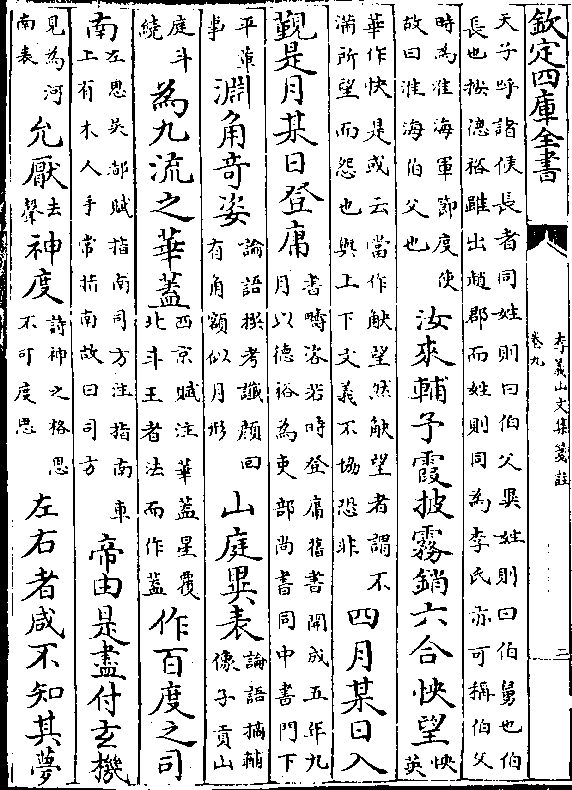 欽定四庫全書
李義山文集箋註
卷九
三
天子呼諸侯長者同姓則曰伯父異姓則曰伯舅也伯
長也按德裕雖出趙郡而姓則同為李氏亦可稱伯父
時為淮海軍節度使
故曰淮海伯父也
汝來輔予霞披霧銷六合怏望
怏
英
華作快是或云當作觖望然觖望者謂不
滿所望而怨也與上下文義不協恐非
四月某日入
覲是月某日登庸
書疇咨若時登庸舊書開成五年九
月以德裕為吏部尚書同中書門下
平章
事
淵角奇姿
論語撰考讖顏回
有角額似月形
山庭異表
論語摘輔
像子貢山
庭斗
繞
為九流之華蓋
西京賦注華蓋星覆
北斗王者法而作蓋
作百度之司
南
左思吳都賦指南司方注指南車
上有木人手常指南故曰司方
帝由是盡付玄機
見為河
南表
允厭
去
聲
神度
詩神之格思
不可度思
左右者咸不知其夢